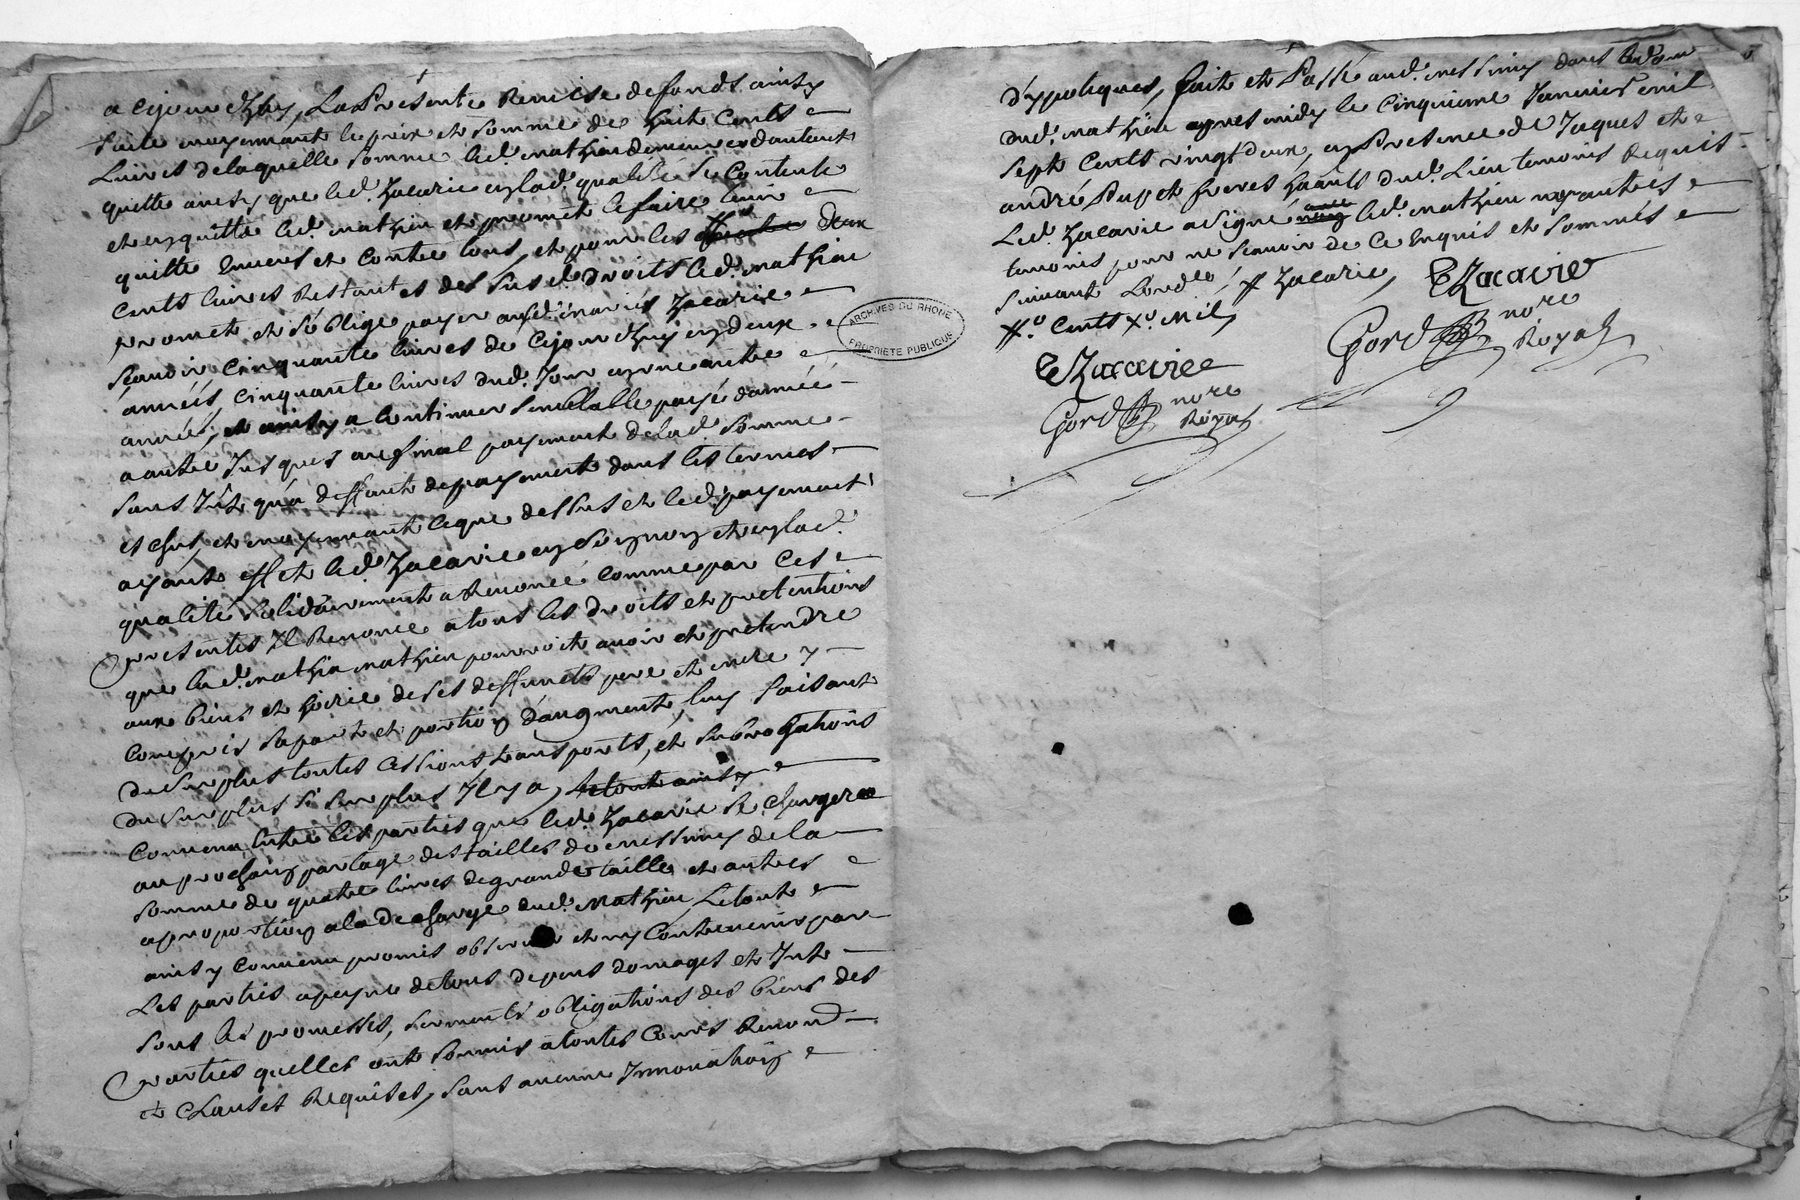 a cejourdhuy, La presente Remise de fonds ainsy
faite moyennant le prix et somme de huit Cents
Livres de laquelle somme led. mathieu demeure dautant
quitte ainsy que led. Zacarie en lad. qualité se Contente
et en quitte led. mathieu et promet le faire tenir
quitte Envers et Contre tous, et pour les deux
Cents livres Restantes des susd. droits led. mathieu
promet et s'oblige payer ausd. mariés Zacarie
sçavoir Cinquante livres de Cejourdhuy en deux
années, Cinquante livres dud. Jour en une autre
année, et ainsy a Continuer semblable paye dannée
a autre Jusques au final payement de lad. somme
sans Intt. qu'a deffaut de payement dans les termes
et chus, et moyennant ce que dessus et led. payement
ayant effet led. Zacarie en Son nom et en lad.
qualité solidairement a Renoncé comme par Ces
presentes Il Renonce a tous les droits et pretentions
que led. mathieu pourroit avoir et pretendre
aux biens et hoirie de ses deffunts pere et mere y
Compris sa part et portion d'augment, luy faisant
du surplus toutes Cessions transports, et subrogations
du surplus si surplus Il y a,
Convenu Entre les parties que led. Zacarie se Chargera
au prochain partage des tailles de messimy de la
somme de quatre livres de grande taille et autres
a proportion a la decharge dud. Mathieu, Le tout
ainsy Convenu promis observer et ny Contrevenir par
Les parties a peyne de tous depens domages et Intt.
sous les promesses, serments obligations des biens des
parties quelles ont soumis a toutes Cours Renond.
et Clauses Requises, sans aucune Innovation
d'ypoteques, fait et Passé aud. messimy dans
dud. mathieu apres midy le Cinquieme Janvier mil
sept Cents vingt deux, en Presence de Jaques et
andré Pupet freres hants dud. Lieu temoins Requis
Led. Zacarie a signé led. mathieu ny autres
temoins pour ne scavoir de Ce Enquis et sommés
suivant Lord.ce Zacarie, E Zacarie
Cents mil
Gord nore
Royal
E Zacarie
Gord nore
Royal
ARCHIVES DU RHONE
PROPRIETE PUBLIQUE